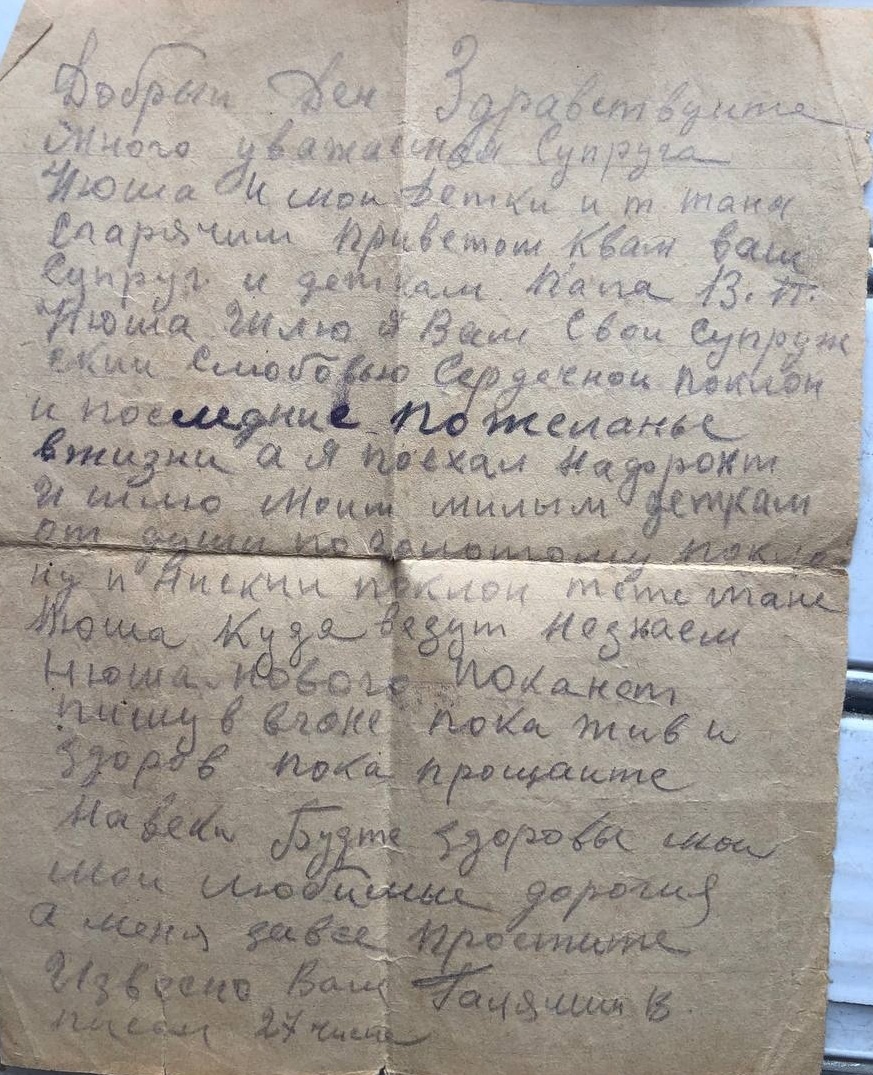 Добрыи Ден Здравствуите
Много уважаемая Супруга
Нюша и мои Детки и т таня
Сгарячим приветом Квам ваш
Супруг и деткам папа В. П.
Нюша Шлю я Вам Свои Супруж
скии Слюбовью Сердечнои поклон
и последние пожеланье
вжизни а я поехал надоронт
И шлю моим милым деткам
от души по золотому покло
ну и Нискии поклон тёте тане
Нюша Куда везут незнаем
Нюша нового поканет
пишу в вгоне пока жив и
здоров пока прощаите
Навеки Будте здоровы мои
мои любимые дорогия
а меня завсе простите
Извесно Ваш Галямин В.
писал 27 числа